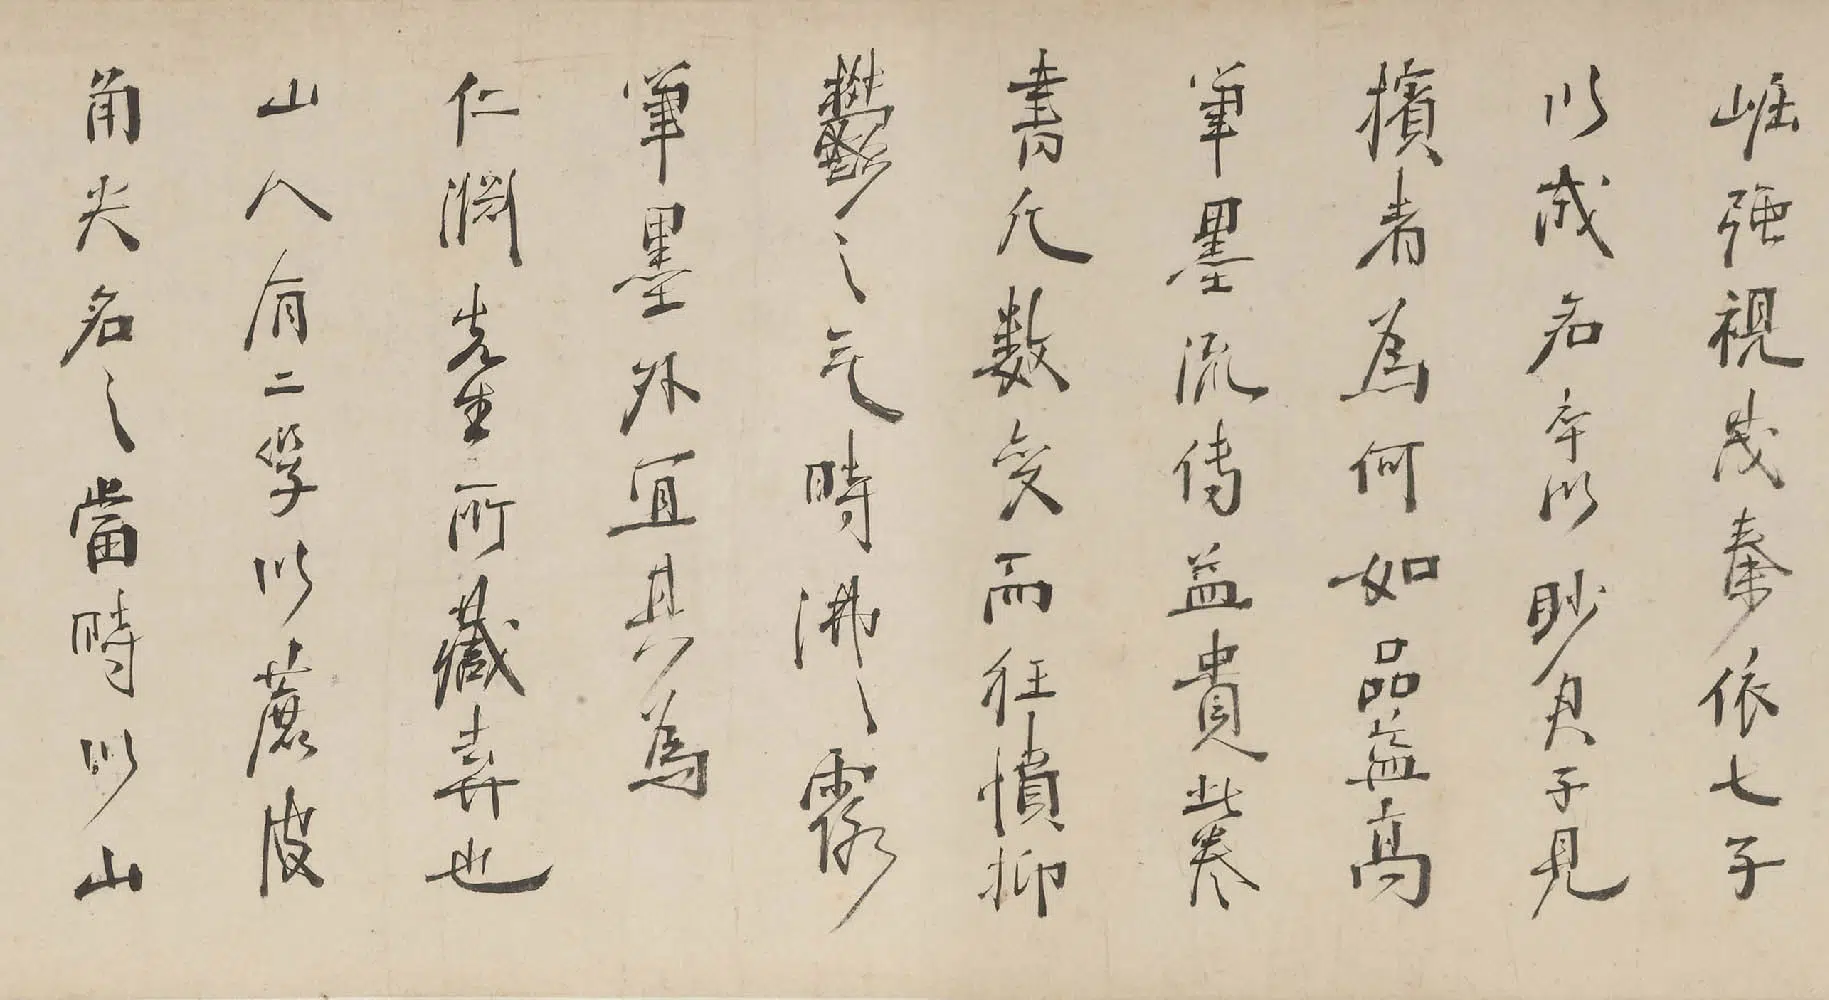 崛强視茂秦依七子
以成名卒以眇君子見
擯者為何如品益高
筆墨流傳益貴此卷
書凡數變而狂憤抑
鬱之氣時沸〻露
筆墨外宜其為
仁淵先生所藏弆也
山人有二孥以蔗皮
角尖名之當時以山